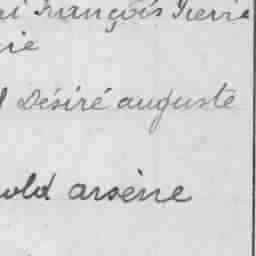 François Pierre
rie
Désiré auguste
old arsène